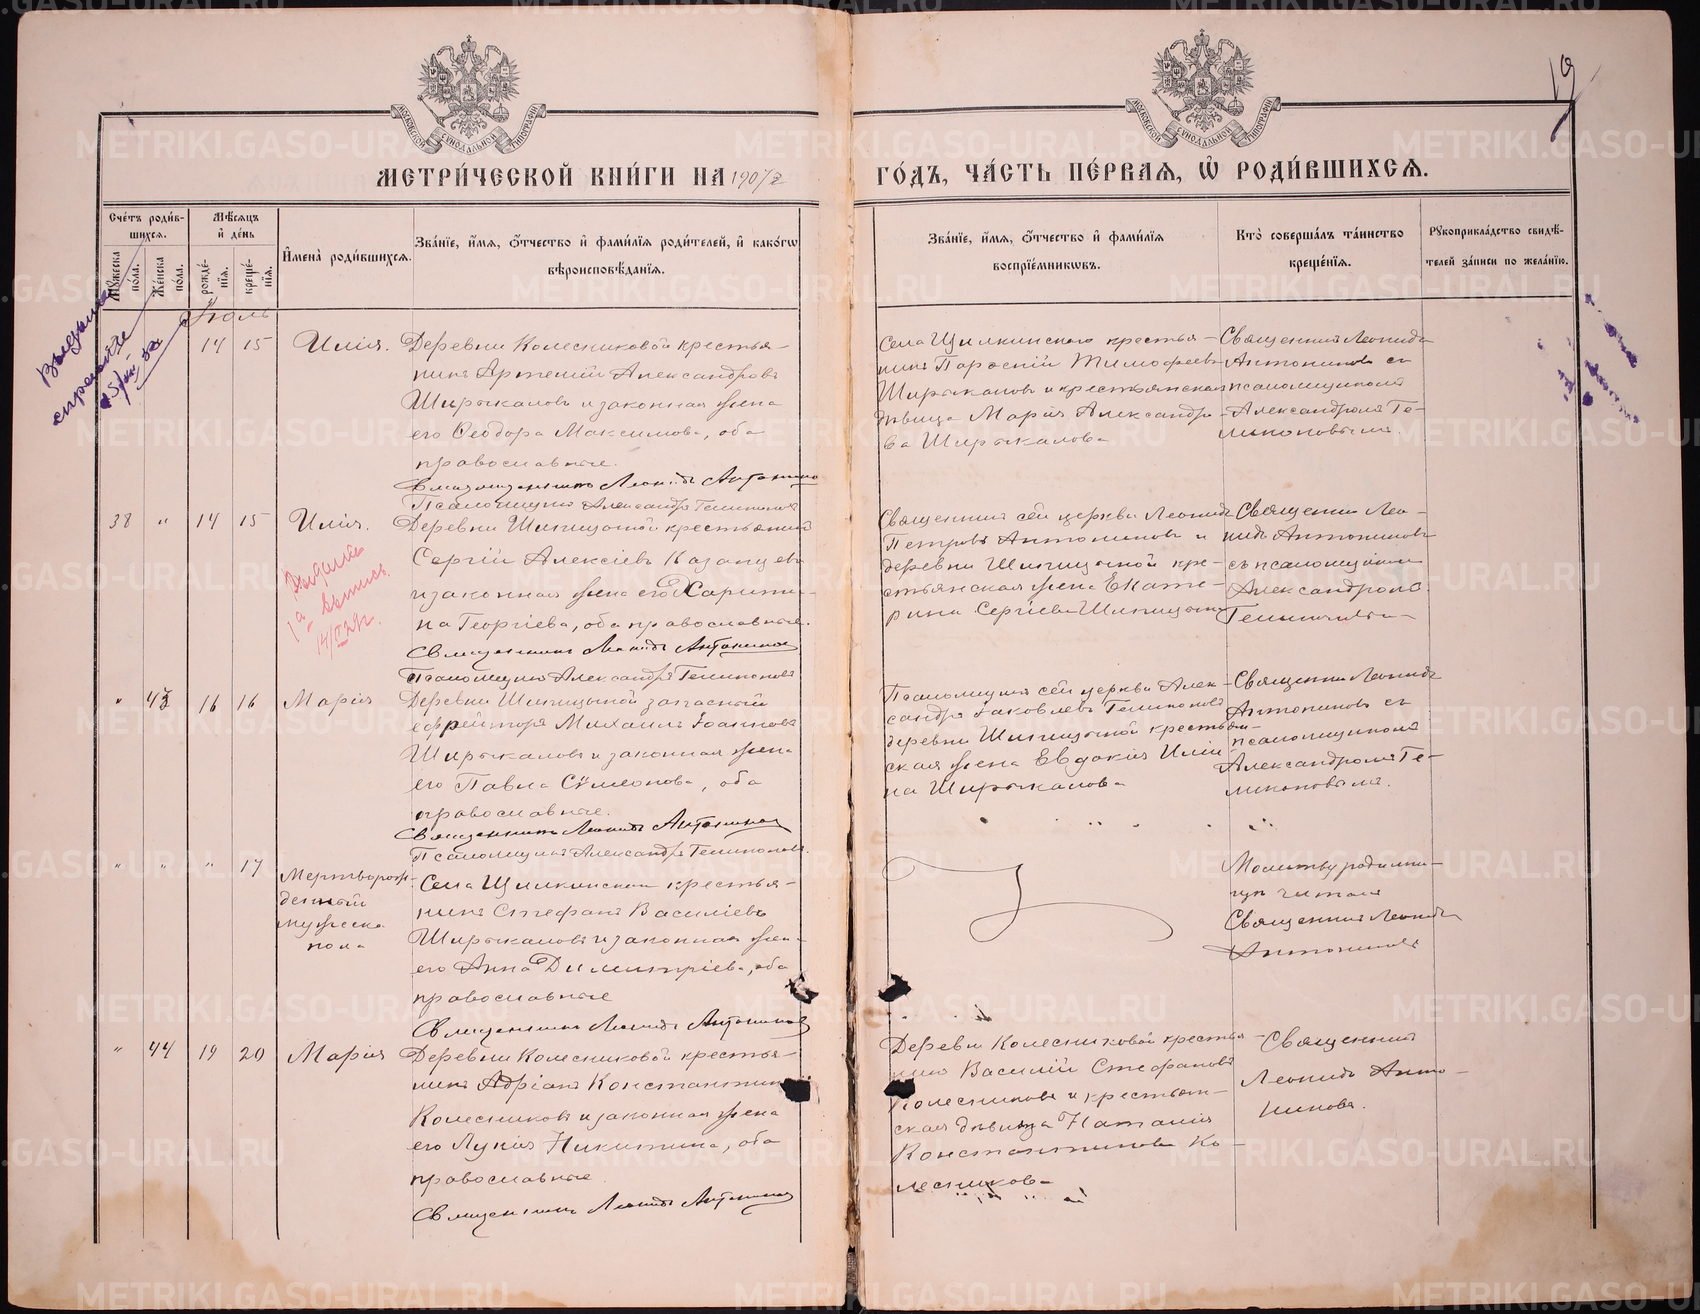 МОСКОВСКОЙ СѴНОДАЛЬНОЙ ТИПОГРАФІИ
МОСКОВСКОЙ СѴНОДАЛЬНОЙ ТИПОГРАФІИ
19
МЕТРИ́ЧЕСКОЙ КНИ́ГИ НА 1907 г
ГО́ДЪ, ЧА́СТЬ ПЕ́РВАЯ, Ѡ҆ РОДИ́ВШИХСЯ.
Сче́тъ роди́в-
шихся.
Мѣ́сяцъ
и҆ де́нь
Му́жеска
по́ла.
Же́нска
по́ла.
рожде́-
нїя.
креще́-
нїя.
И҆мена̀ роди́вшихся.
Зва́нїе, и҆́мя, ѻ҆́тчество и҆ фами́лїя роди́телей, и҆ како́гѡ
вѣроисповѣ́данїя.
Зва́нїе, и҆́мя, ѻ҆́тчество и҆ фами́лїя
воспрїе́мникѡвъ.
Кто̀ соверша́лъ та́инство
креще́нїя.
Рꙋкоприкла́дство свидѣ́-
телей за́писи по жела́нїю.
Іюль
14 15 Илія.
Деревни Колесниковой крестья-
нинъ Артемій Александровъ
Ширыкаловъ и законная жена
его Ѳеодора Максимова, оба
православные.
Священникъ Леонидъ Антониновъ
Псаломщикъ Александръ Геликоновъ
Села Щилкинскаго крестья-
нинъ Тимофеевъ
Ширыкаловъ и крестьянская
дѣвица Марія Александро-
ва Ширыкалова
Священникъ Леонидъ
Антониновъ съ
псаломщикомъ
Александромъ Ге-
ликоновымъ
Выдана
справка
38 " 14 15 Илія.
Деревни Шипицыной крестьянинъ
Сергій Алексіевъ Казанцевъ
и законная жена его Харити-
на Георгіева, оба православные.
Священникъ Леонидъ Антониновъ
Псаломщикъ Александръ Геликоновъ
Выдана
выпись
Священникъ сей церкви Леонидъ
Петровъ Антониновъ и
деревни Шипицыной кре-
стьянская жена Екате-
рина Сергіева Шипицына
Священникъ Лео-
нидъ Антониновъ
съ псаломщикомъ
Александромъ
Геликоновымъ
" 43 16 16 Марія
Деревни Шипицыной запасный
ефрейторъ Михаилъ Іоанновъ
Ширыкаловъ и законная жена
его Павла Сѵмеонова, оба
православные.
Священникъ Леонидъ Антониновъ
Псаломщикъ Александръ Геликоновъ.
Псаломщикъ сей церкви Алек-
сандръ Іаковлевъ Геликоновъ
деревни Шипицыной крестьян-
ская жена Евдокія Иліи
на Ширыкалова
Священникъ Леонидъ
Антониновъ съ
псаломщикомъ
Александромъ Ге-
ликоновымъ.
" " " 17 Мертворож-
денный
мужеска
пола
Села Щилкинскаго крестья-
нинъ Стефанъ Василіевъ
Ширыкаловъ и законная жена
его Анна Димитріева, оба
православные
Священникъ Леонидъ Антониновъ
Молитву родильни-
цѣ читалъ
Священникъ Леонидъ
Антониновъ
" 44 19 20 Марія
Деревни Колесниковой крестья-
нинъ Адріанъ Константинов
Колесниковъ и законная жена
его Лукія Никитина, оба
православные.
Священникъ Леонидъ Антониновъ
Деревни Колесниковой крестья-
нинъ Василій Стефановъ
Колесниковъ и крестьян-
ская дѣвица Наталія
Константинова Ко-
лесникова
Священникъ
Леонидъ Анто-
ниновъ.
METRIKI.GASO-URAL.RU